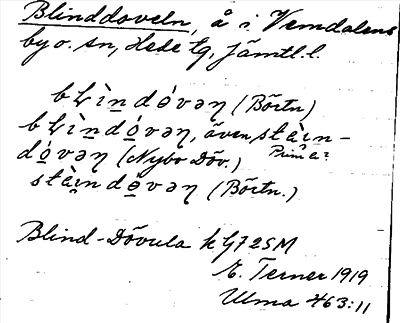 Blinddoveln, å i Vemdalens
by o. sn, Hede tg, Jämtl. l.
bLìndóvəŋ (Börtn)
bLìndóvəŋ, även, stàin-
dóvəŋ (Nybo Döv.)
stàindóvəŋ (Börtn.)
Blind-Dövula k G72SM
E. Terner 1919
Ulma 463:11